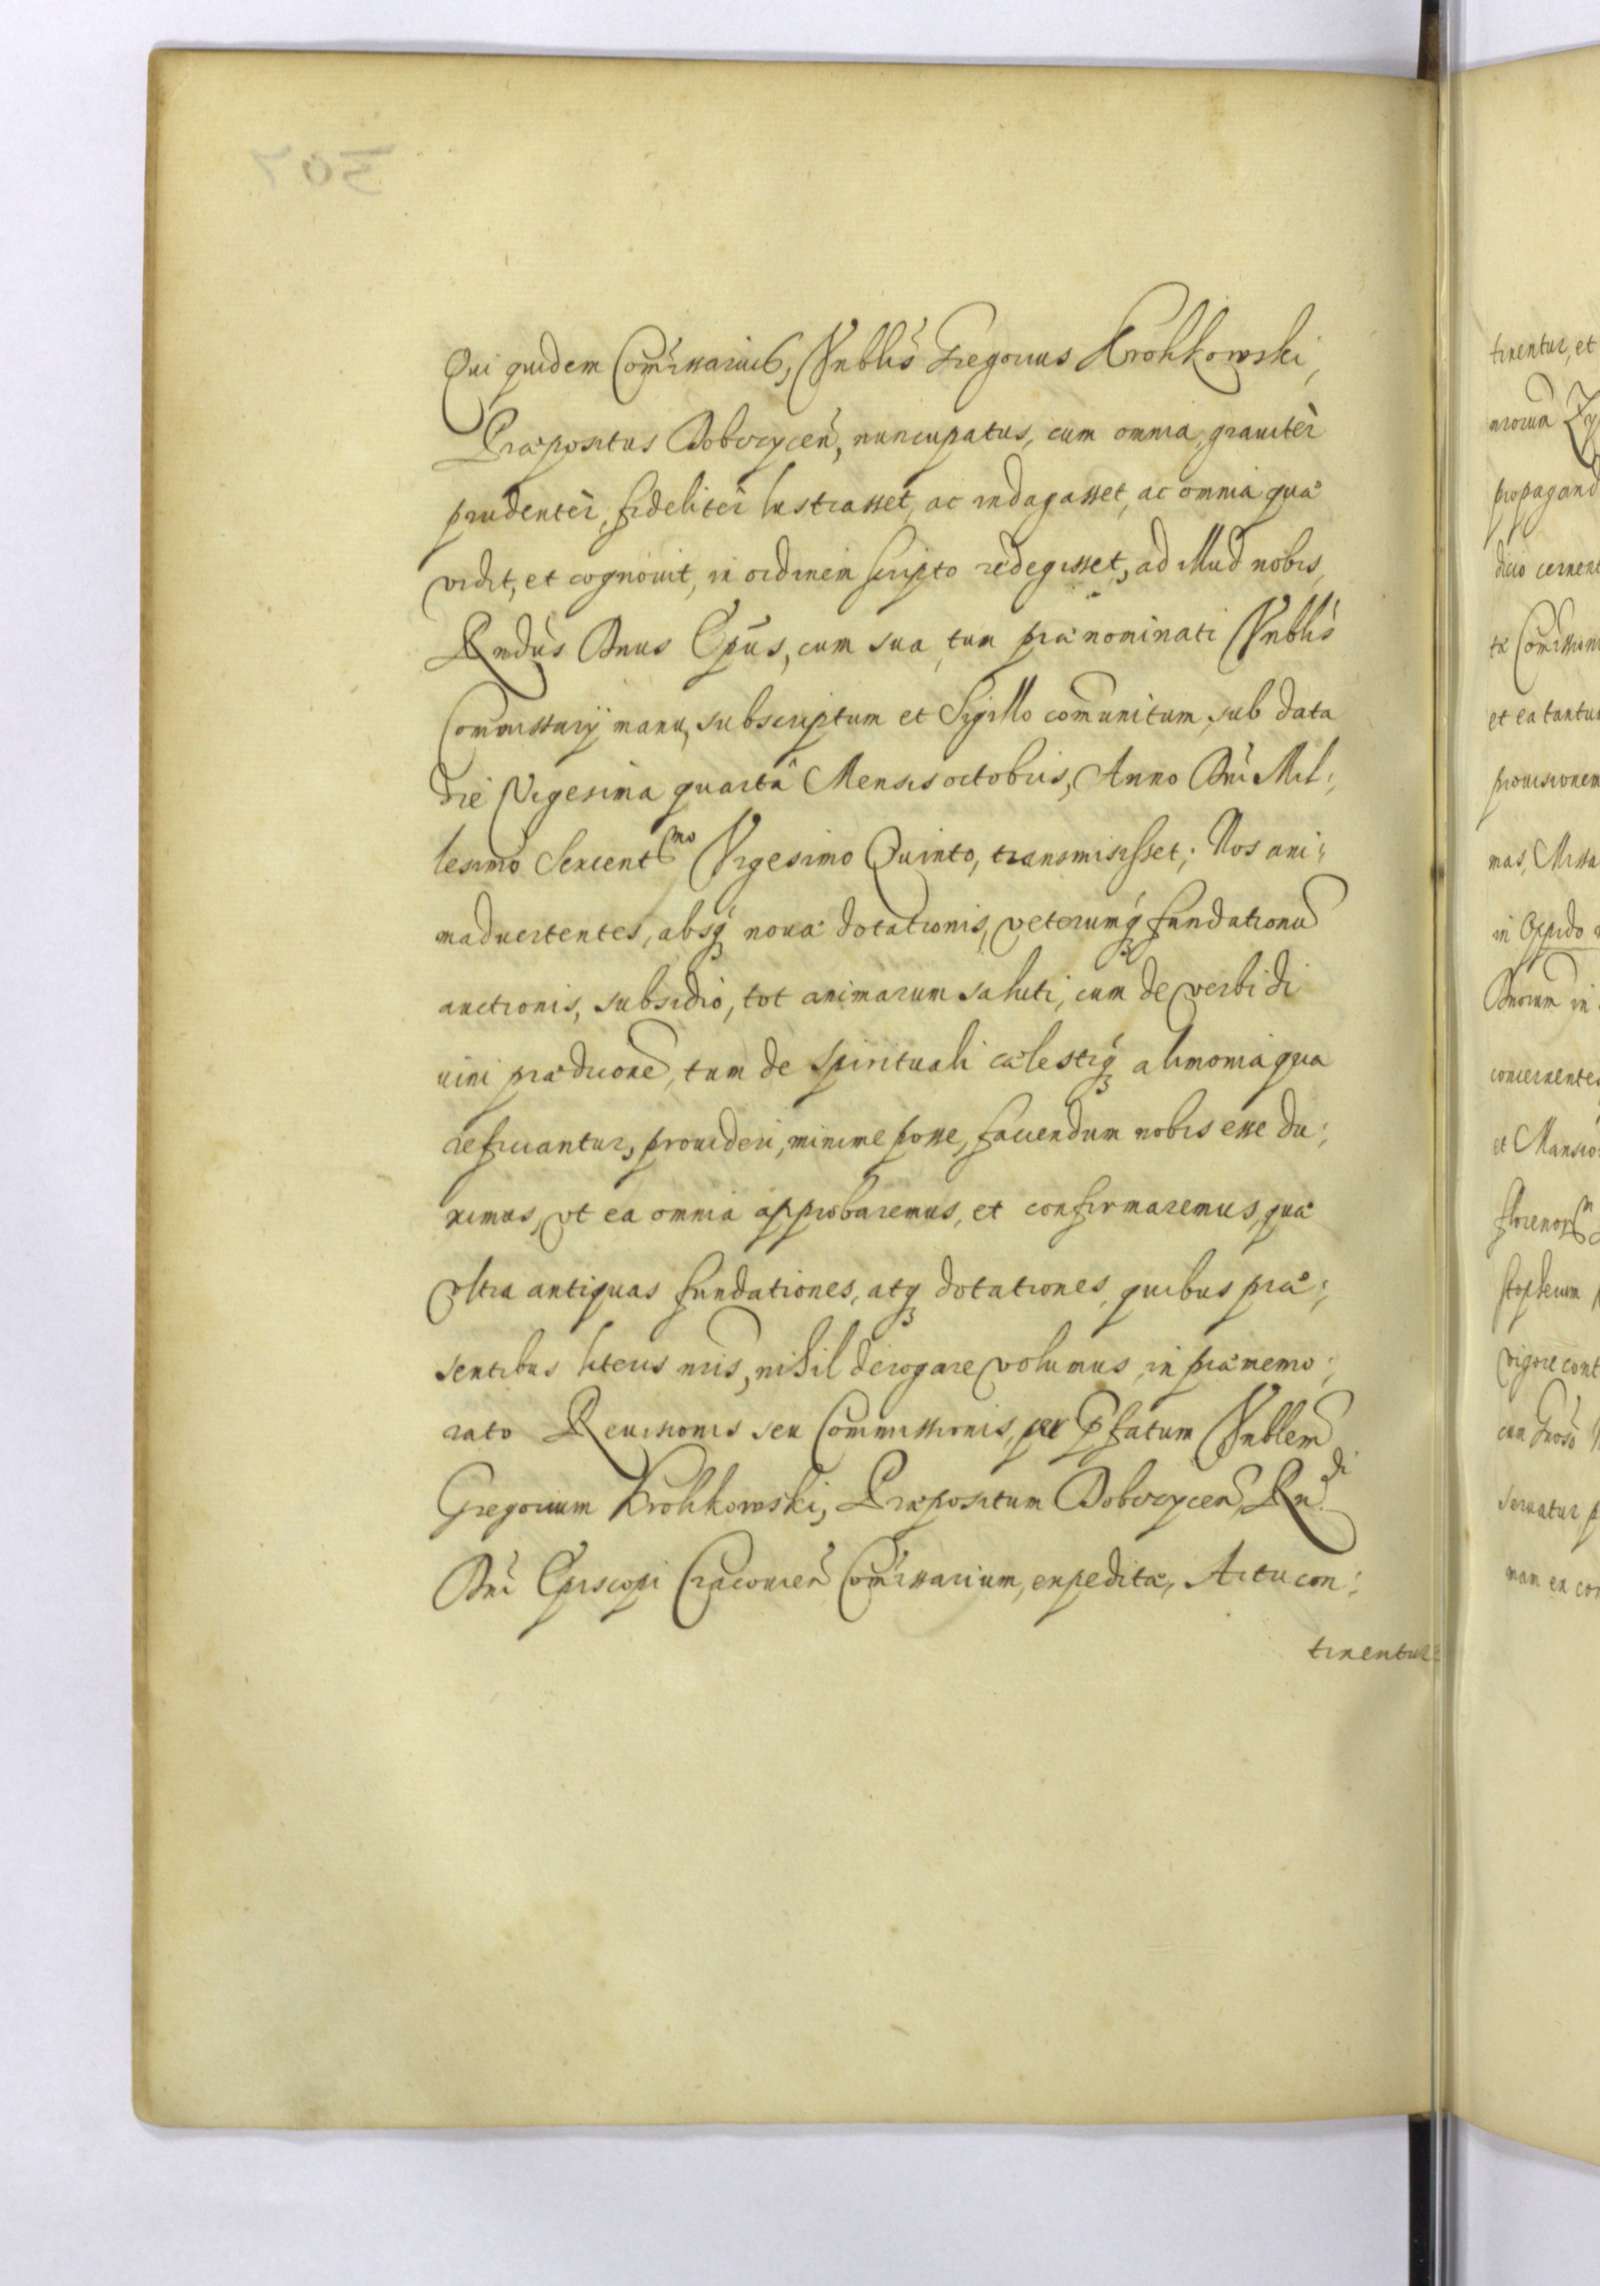 Qui quidem Com̃issarius, Vnblis̃ Gregorius Krohkowski,
Præpositus Dobczyceñ, nuncupatus, cum omnia, grauitèr
prudentèr, fidelitèr lustrasset, ac indagasset, ac omnia quæ
vidit, et cognouit, in ordinem scripto redegisset, ad illud nobis,
Rndus̃ Dnus Ep̃us, cum sua, tum prænominati Vnblis̃
Commissarij manu, subscriptum et Sigillo com̃unitum, sub data
die Vigesima quartâ Mensis octobris, Anno Dni Mil:
lesimo Sexcent mo Vigesimo Quinto, transmisisset; Nos ani:
maduertentes, absq₃ nouæ dotationis, veterumq₃ fundationũ
auctionis, subsidio, tot animarum saluti, cum de verbi di
uini prædicõne, tum de Spirituali cælestiq₃ alimonia qua
reficiantur, prouideri, minime posse, faciendum nobis esse du:
ximus, vt ea omnia approbaremus, et confirmaremus, quæ
vltra antiquas fundationes, atq₃ dotationes, quibus præ:
sentibus literis nris, nihil derogare volumus, in præmemo:
rato Reuisionis seu Commissionis, per p̃fatum Vnblem̃
Gregorium Krohkowski, Præpositum Dobczyceñ, Rndi
Dnĩ Episcopi Cracouieñ Com̃issarium, expeditæ, Actu con:
tinentur:
tinentur, et
propagand
dicio cernent
et ea tantu
prouisionem
mas, Missa
in Oppido
Dnorum in
concernentes
et Mansio
vigore cont
seruatur p
mam ex co